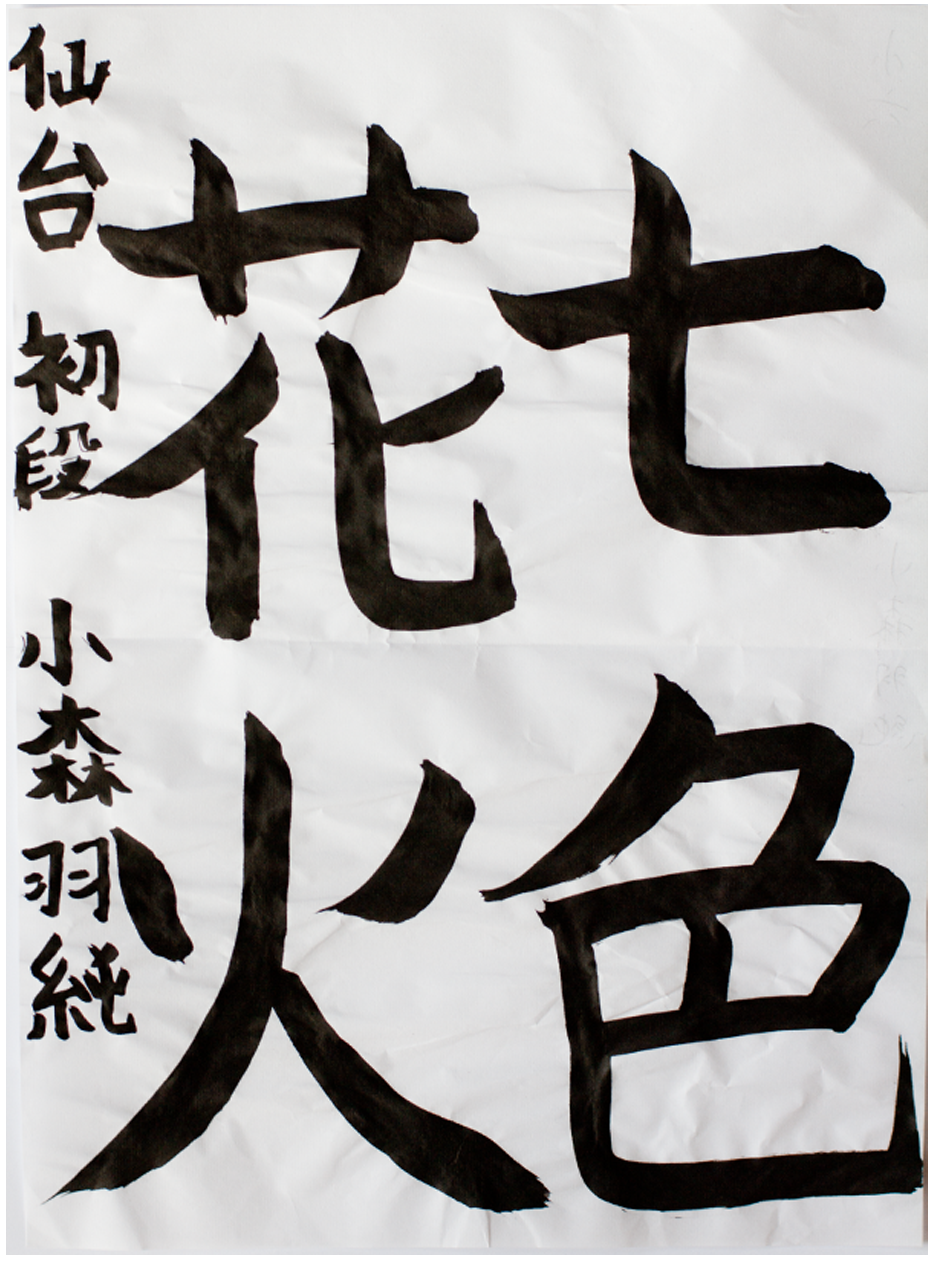 七色
花火
仙台 初段 小森羽純